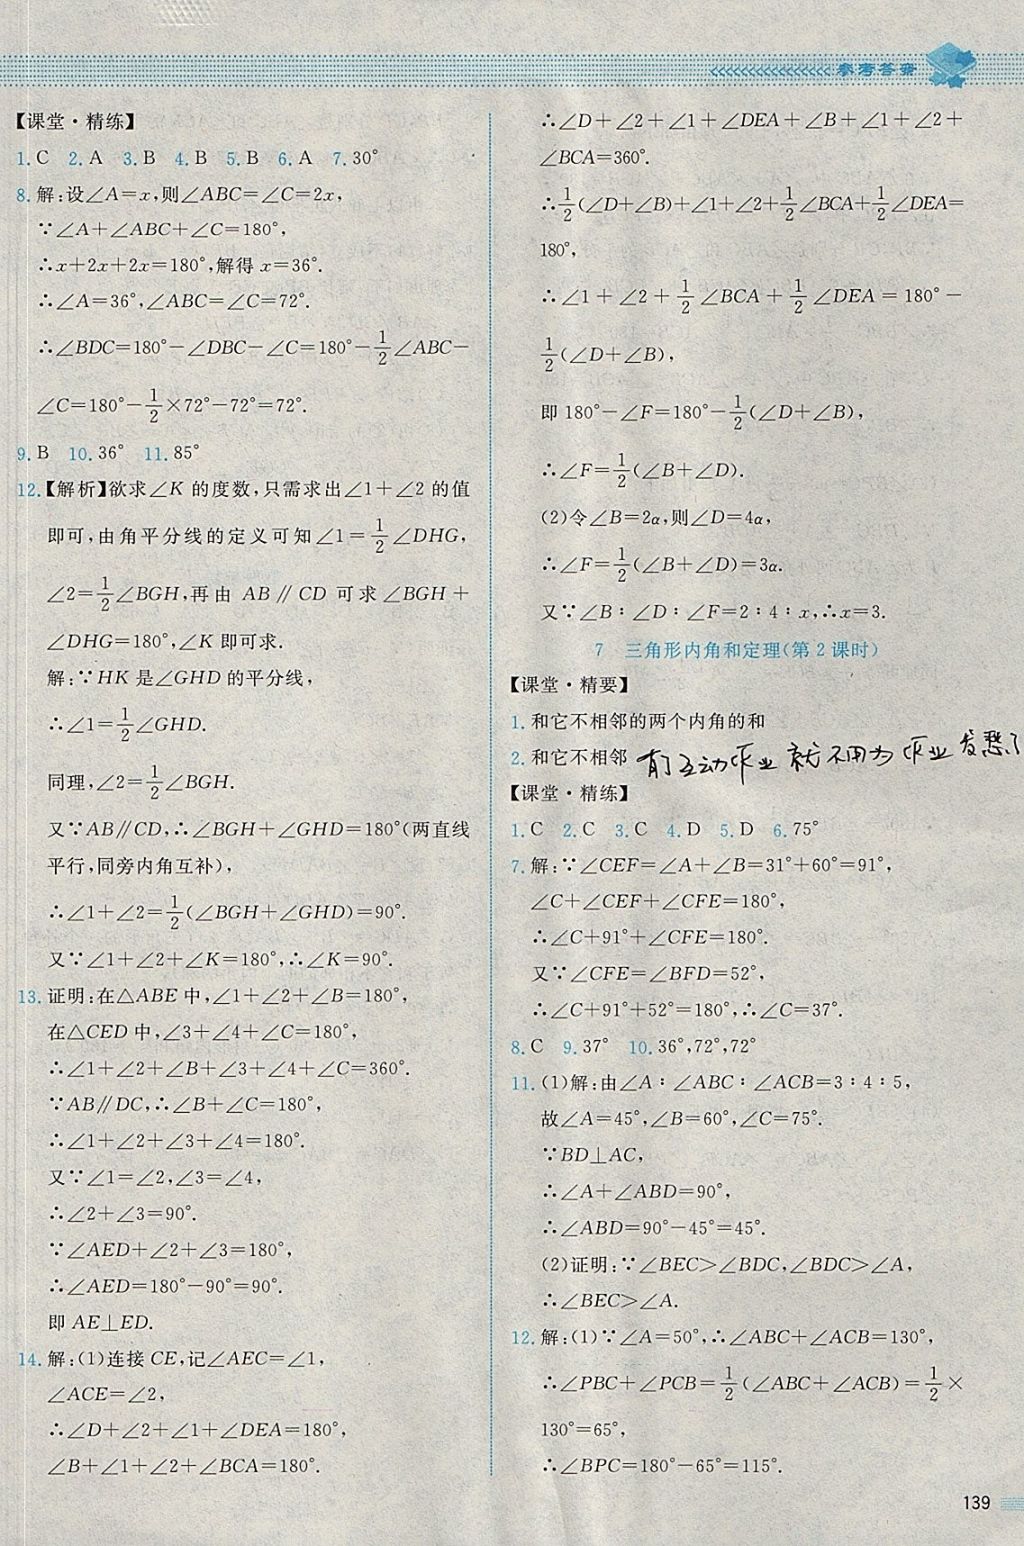 参考答案
【课堂·精练】
1. C 2. A 3. B 4. B 5. B 6. A 7. 30°
8. 解:设∠A=x,则∠ABC=∠C=2x,
∵∠A+∠ABC+∠C=180°,
∴x+2x+2x=180°,解得 x=36°.
∴∠A=36°,∠ABC=∠C=72°.
∴∠BDC=180°-∠DBC-∠C=180°-1/2∠ABC-
∠C=180°-1/2×72°-72°=72°.
9. B 10. 36° 11. 85°
12.【解析】欲求∠K 的度数,只需求出∠1+∠2 的值
即可,由角平分线的定义可知∠1=1/2∠DHG,
∠2=1/2∠BGH,再由 AB∥CD 可求∠BGH+
∠DHG=180°,∠K 即可求.
解:∵HK 是∠GHD 的平分线,
∴∠1=1/2∠GHD.
同理,∠2=1/2∠BGH.
又∵AB∥CD,∴∠BGH+∠GHD=180°(两直线
平行,同旁内角互补),
∴∠1+∠2=1/2(∠BGH+∠GHD)=90°.
又∵∠1+∠2+∠K=180°,∴∠K=90°.
13. 证明:在△ABE 中,∠1+∠2+∠B=180°,
在△CED 中,∠3+∠4+∠C=180°,
∴∠1+∠2+∠B+∠3+∠4+∠C=360°.
∵AB∥DC,∴∠B+∠C=180°,
∴∠1+∠2+∠3+∠4=180°.
又∵∠1=∠2,∠3=∠4,
∴∠2+∠3=90°.
∵∠AED+∠2+∠3=180°,
∴∠AED=180°-90°=90°.
即 AE⊥ED.
14. 解:(1)连接 CE,记∠AEC=∠1,
∠ACE=∠2,
∴∠D+∠2+∠1+∠DEA=180°,
∠B+∠1+∠2+∠BCA=180°.
∴∠D+∠2+∠1+∠DEA+∠B+∠1+∠2+
∠BCA=360°.
∴1/2(∠D+∠B)+∠1+∠2+1/2∠BCA+1/2∠DEA=
180°,
∴∠1+∠2+1/2∠BCA+1/2∠DEA=180°-
1/2(∠D+∠B),
即 180°-∠F=180°-1/2(∠D+∠B),
∴∠F=1/2(∠B+∠D).
(2)令∠B=2α,则∠D=4α,
∴∠F=1/2(∠B+∠D)=3α.
又∵∠B∶∠D∶∠F=2∶4∶x,∴x=3.
7 三角形内角和定理(第 2 课时)
【课堂·精要】
1. 和它不相邻的两个内角的和
2. 和它不相邻 有了互动作业 就不用为作业发愁了
【课堂·精练】
1. C 2. C 3. C 4. D 5. D 6. 75°
7. 解:∵∠CEF=∠A+∠B=31°+60°=91°,
∠C+∠CEF+∠CFE=180°,
∴∠C+91°+∠CFE=180°.
又∵∠CFE=∠BFD=52°,
∴∠C+91°+52°=180°,∴∠C=37°.
8. C 9. 37° 10. 36°,72°,72°
11. (1)解:由∠A∶∠ABC∶∠ACB=3∶4∶5,
故∠A=45°,∠B=60°,∠C=75°.
∵BD⊥AC,
∴∠A+∠ABD=90°,
∴∠ABD=90°-45°=45°.
(2)证明:∵∠BEC>∠BDC,∠BDC>∠A,
∴∠BEC>∠A.
12. 解:(1)∵∠A=50°,∴∠ABC+∠ACB=130°,
∴∠PBC+∠PCB=1/2(∠ABC+∠ACB)=1/2×
130°=65°,
∴∠BPC=180°-65°=115°.
139